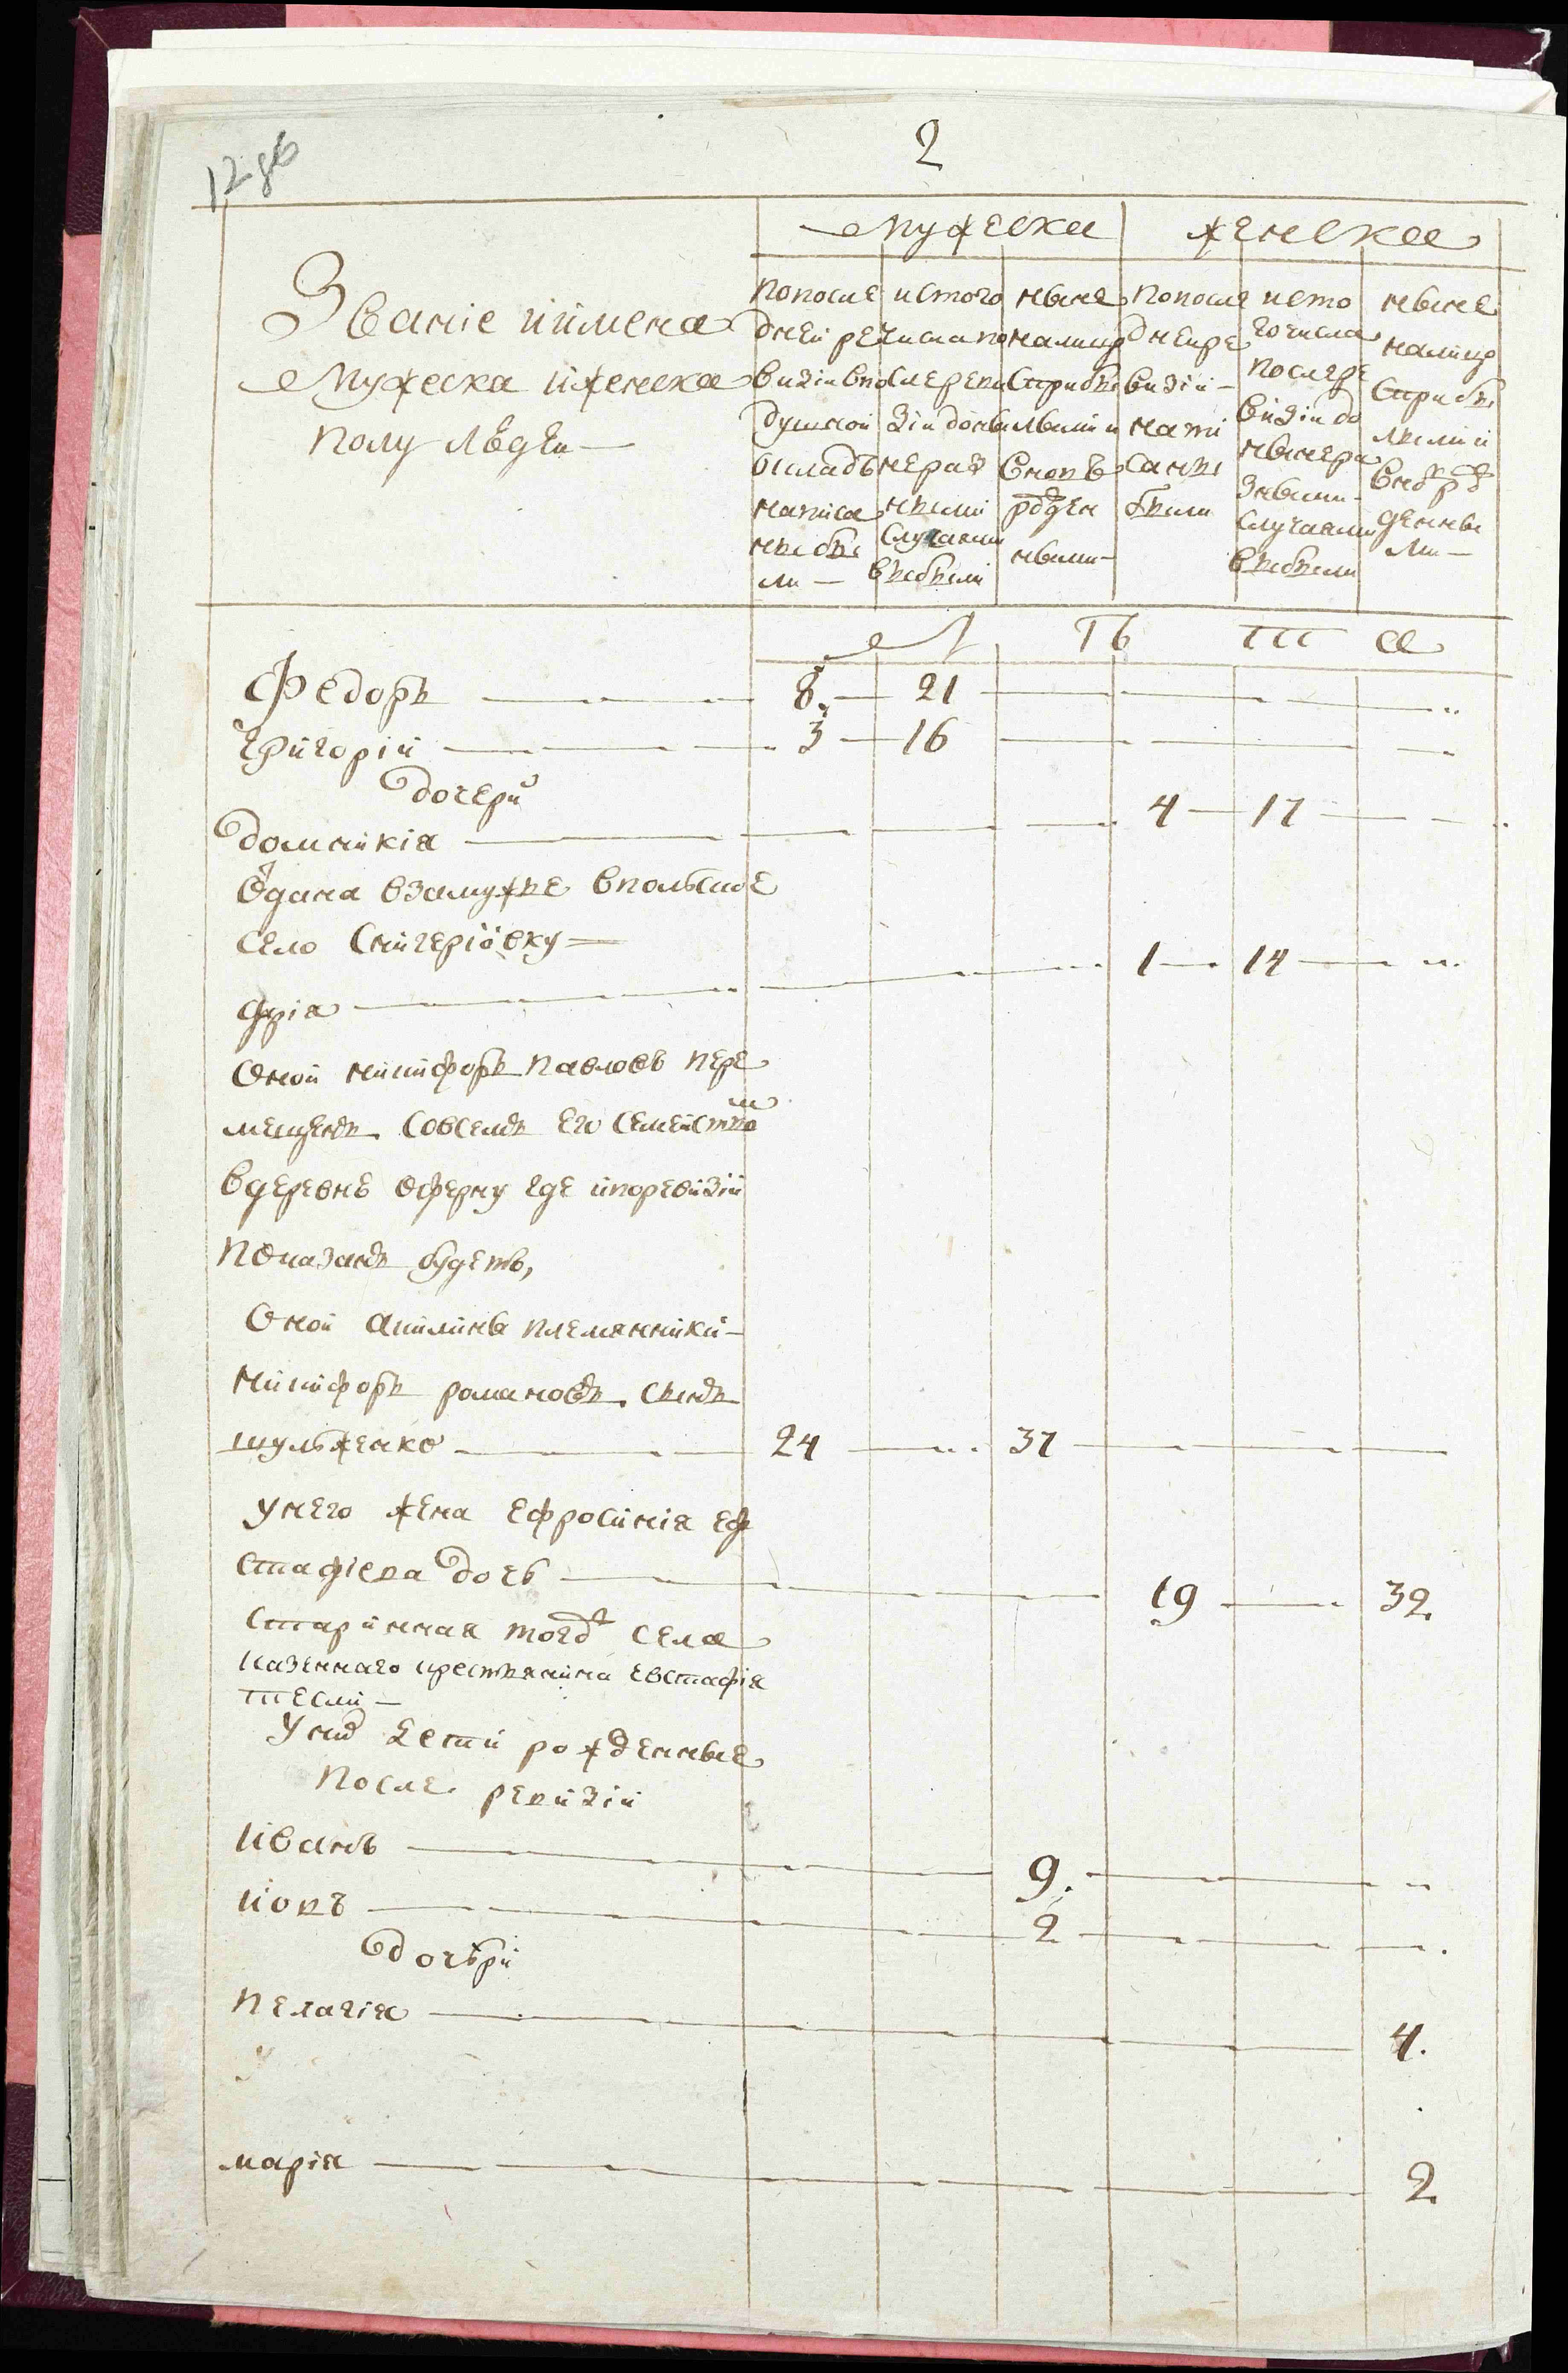 12 об
2
Званіе иимена
Мужеска иженска
полу людеи —
Мужеска
женска
попосле
дней ре
визіи впо
душной
окладъ
написа
ны бы
ли —
истого
числа по
следреви
зіи доны
не раз
ными
случаями
выбыли
ныне
налицо
сприбы
лыми и
вновь
рожден
ными —
попосле
днеире
визіи —
напи
саны
были
исто
гочисла
последре
визіи до
нынера
зными
случаями
выбыли
ныне
налицо
сприбы
лыми и
вновь рож
денны
ми —
Л Ѣ Т А
Федоръ — 8. — 21
Григорій — 3 — 16
дочери
домникія — 4 — 17
Отдана взамужье впольское
село Снигеріовку =
— 1 — 14
Оной никифоръ павловъ пере
мещенъ совсемъ его семейством
вдеревнѣ Оферну где ипоревизіи
показанъ будетъ,
Оной акилины племянники —
никифоръ романовъ сынъ
шульженко — 24 — 37
унего жена ефросинія еф
стафіева дочь — 19 — 32.
старинная тогож села
казеннаго крестьянина евстафія
тесли —
уних дети рожденные
после ревизіи
иванъ — 9.
иовъ — 2
дочѣри
пелагія — 4.
марія — 2